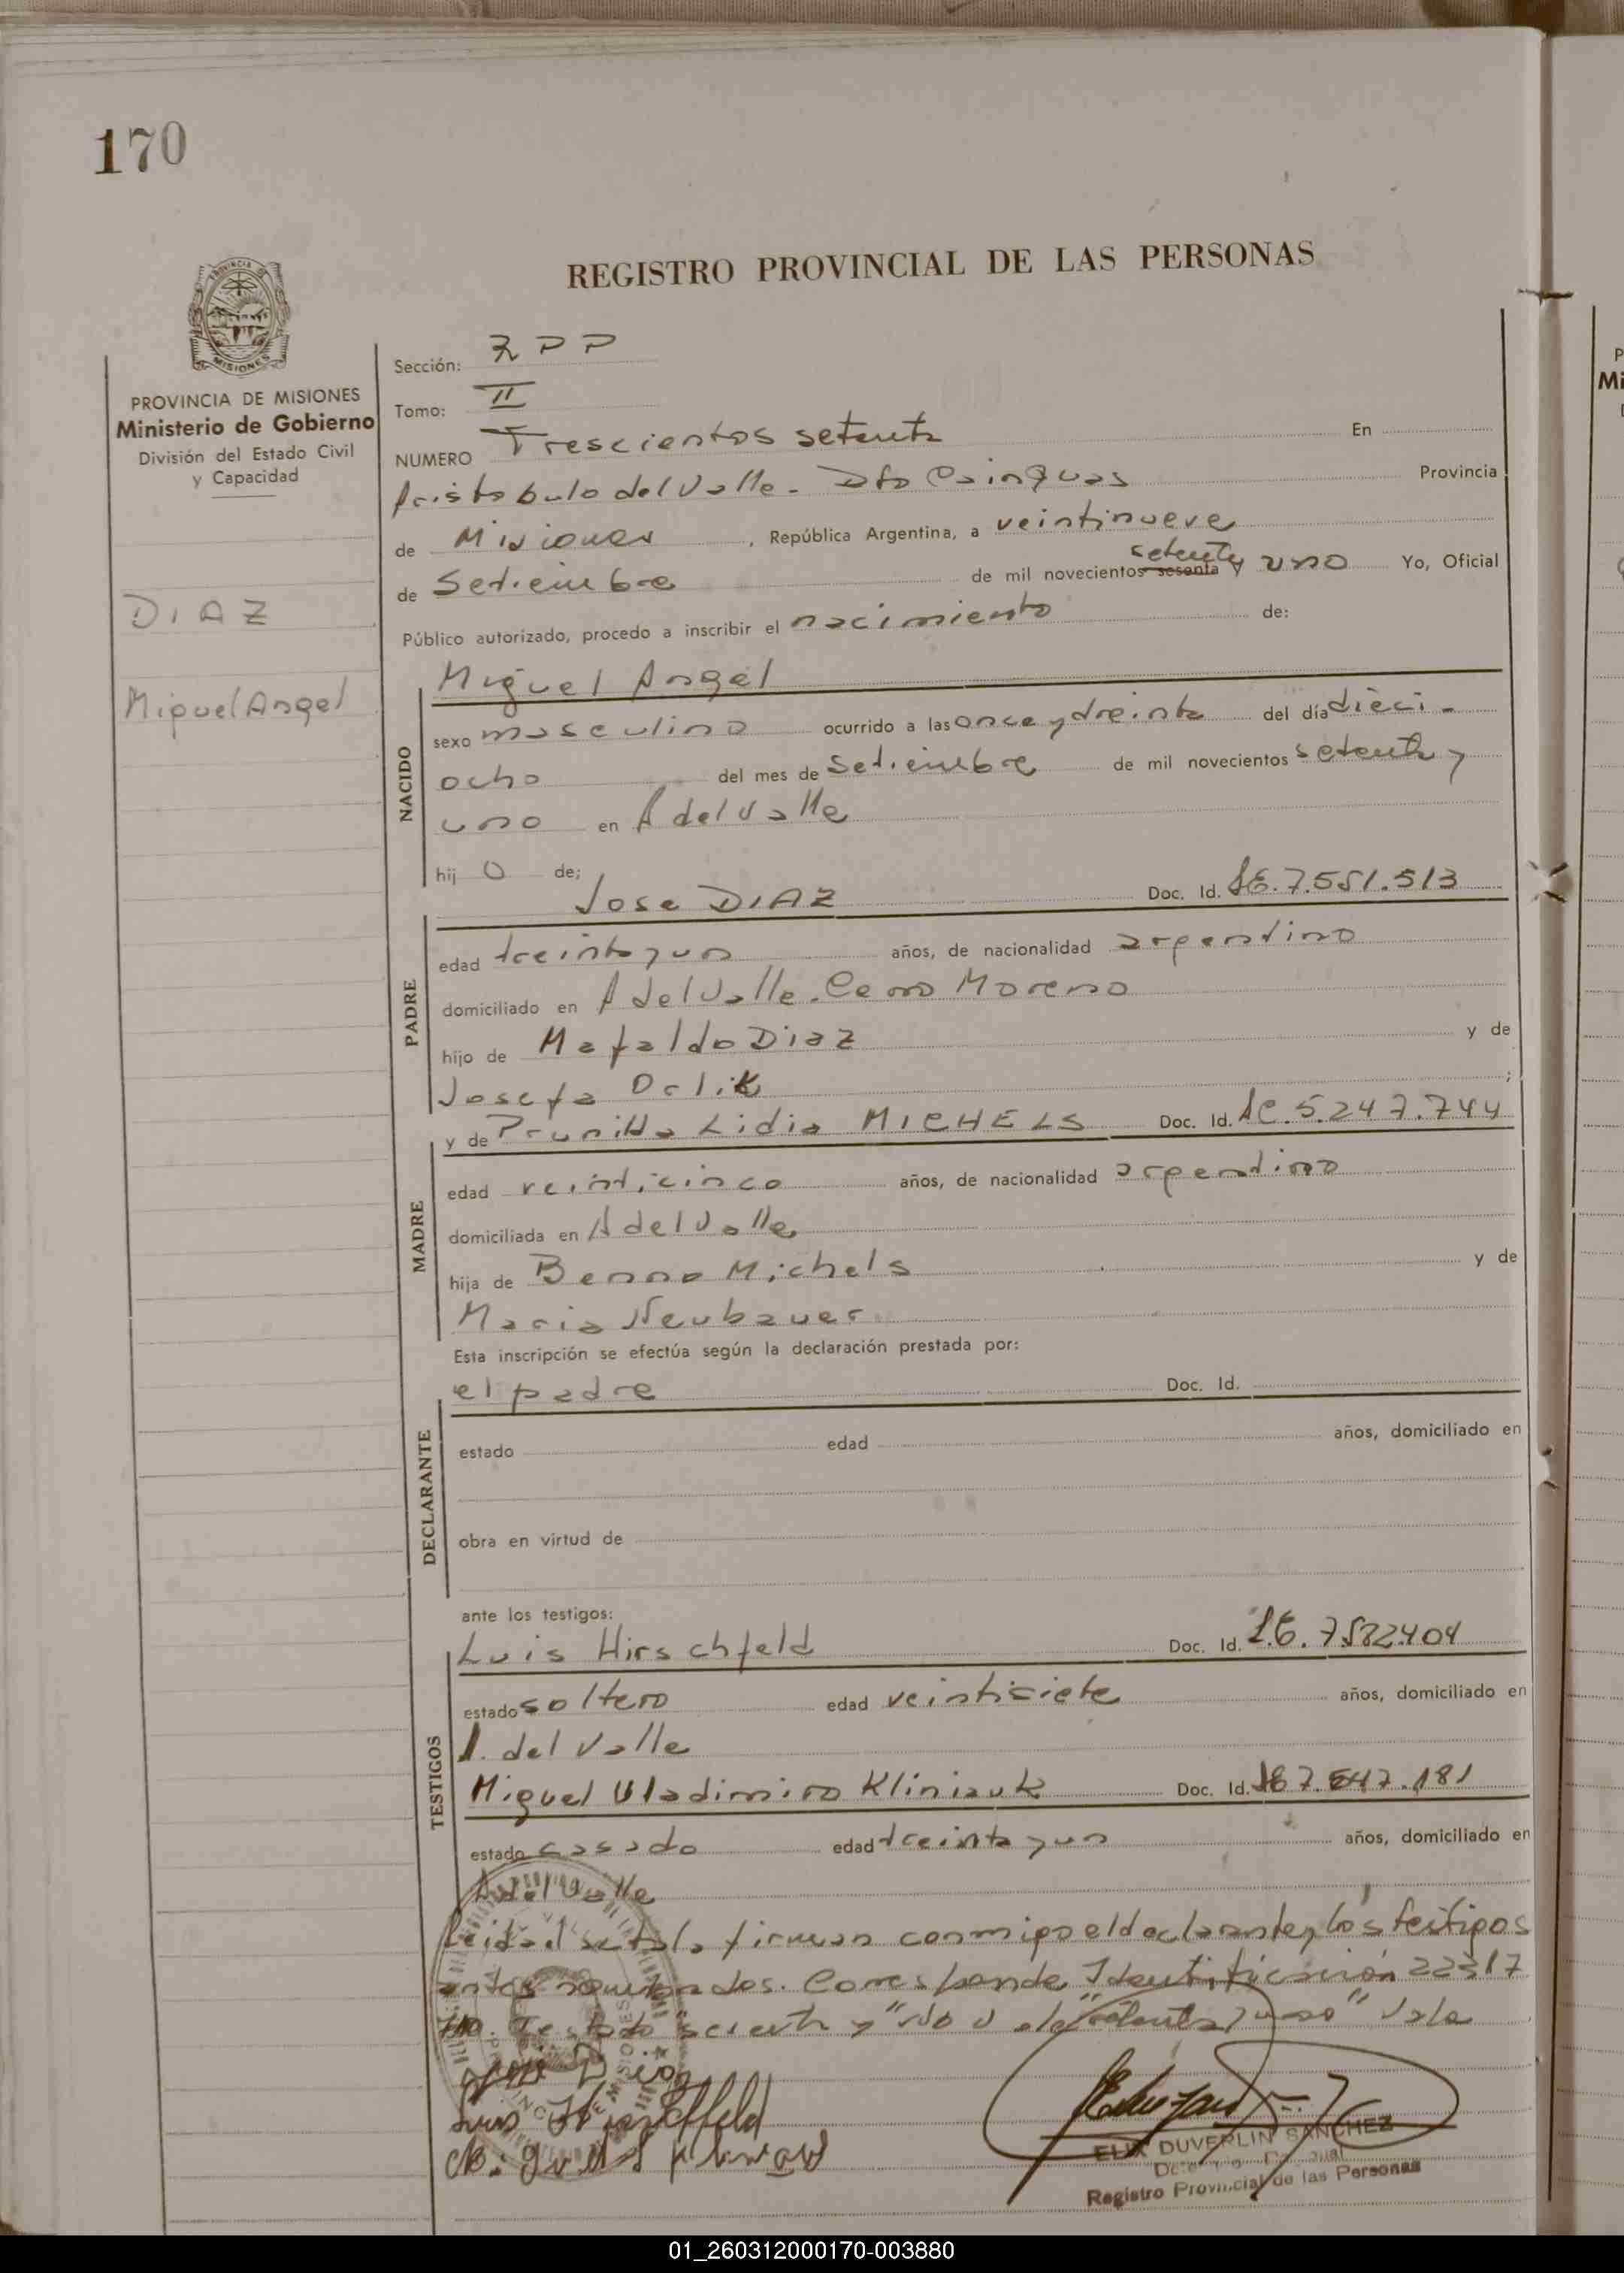 170
REGISTRO PROVINCIAL DE LAS PERSONAS
PROVINCIA DE MISIONES
Ministerio de Gobierno
División del Estado Civil
y Capacidad
DIAZ
Miguel Angel
Sección: RPP
Tomo: II
NUMERO Trescientos setenta En
Aristobulo del Valle - Dto Cainguas Provincia
de Misiones, República Argentina, a veintinueve
de Setiembre de mil novecientos sesenta setenta y uno Yo, Oficial
Público autorizado, procedo a inscribir el nacimiento de:
NACIDO
Miguel Angel
sexo masculino ocurrido a las once y treinta del día dieci-
ocho del mes de Setiembre de mil novecientos setenta y
uno en A del Valle
hij o de;
PADRE
Jose DIAZ Doc. Id. 7.551.513
edad treinta y un años, de nacionalidad argentino
domiciliado en A del Valle. Cerro Moreno
hijo de Mafaldo Diaz y de
Josefa Orlik ;
MADRE
y de Prunilda Lidia MICHELS Doc. Id. LC. 5.247.744
edad veinticinco años, de nacionalidad argentino
domiciliada en A del Valle
hija de Benno Michels y de
Maria Neubauer
Esta inscripción se efectúa según la declaración prestada por:
DECLARANTE
el padre Doc. Id.
estado edad años, domiciliado en
obra en virtud de
ante los testigos:
TESTIGOS
Luis Hirschfeld Doc. Id. 7.582.404
estado soltero edad veintisiete años, domiciliado en
A. del Valle
Miguel Vladimiro Kliniauk Doc. Id. 7.547.181
estado casado edad treinta y un años, domiciliado en
A del Valle
Leida el acta la firman conmigo el declarante y los testigos
antes nombrados. Corresponde Identificación 22317
Testado setenta y uno" Vale
ELIX DUVERLIN SANCHEZ
Registro Provincial de las Personas
01_260312000170-003880